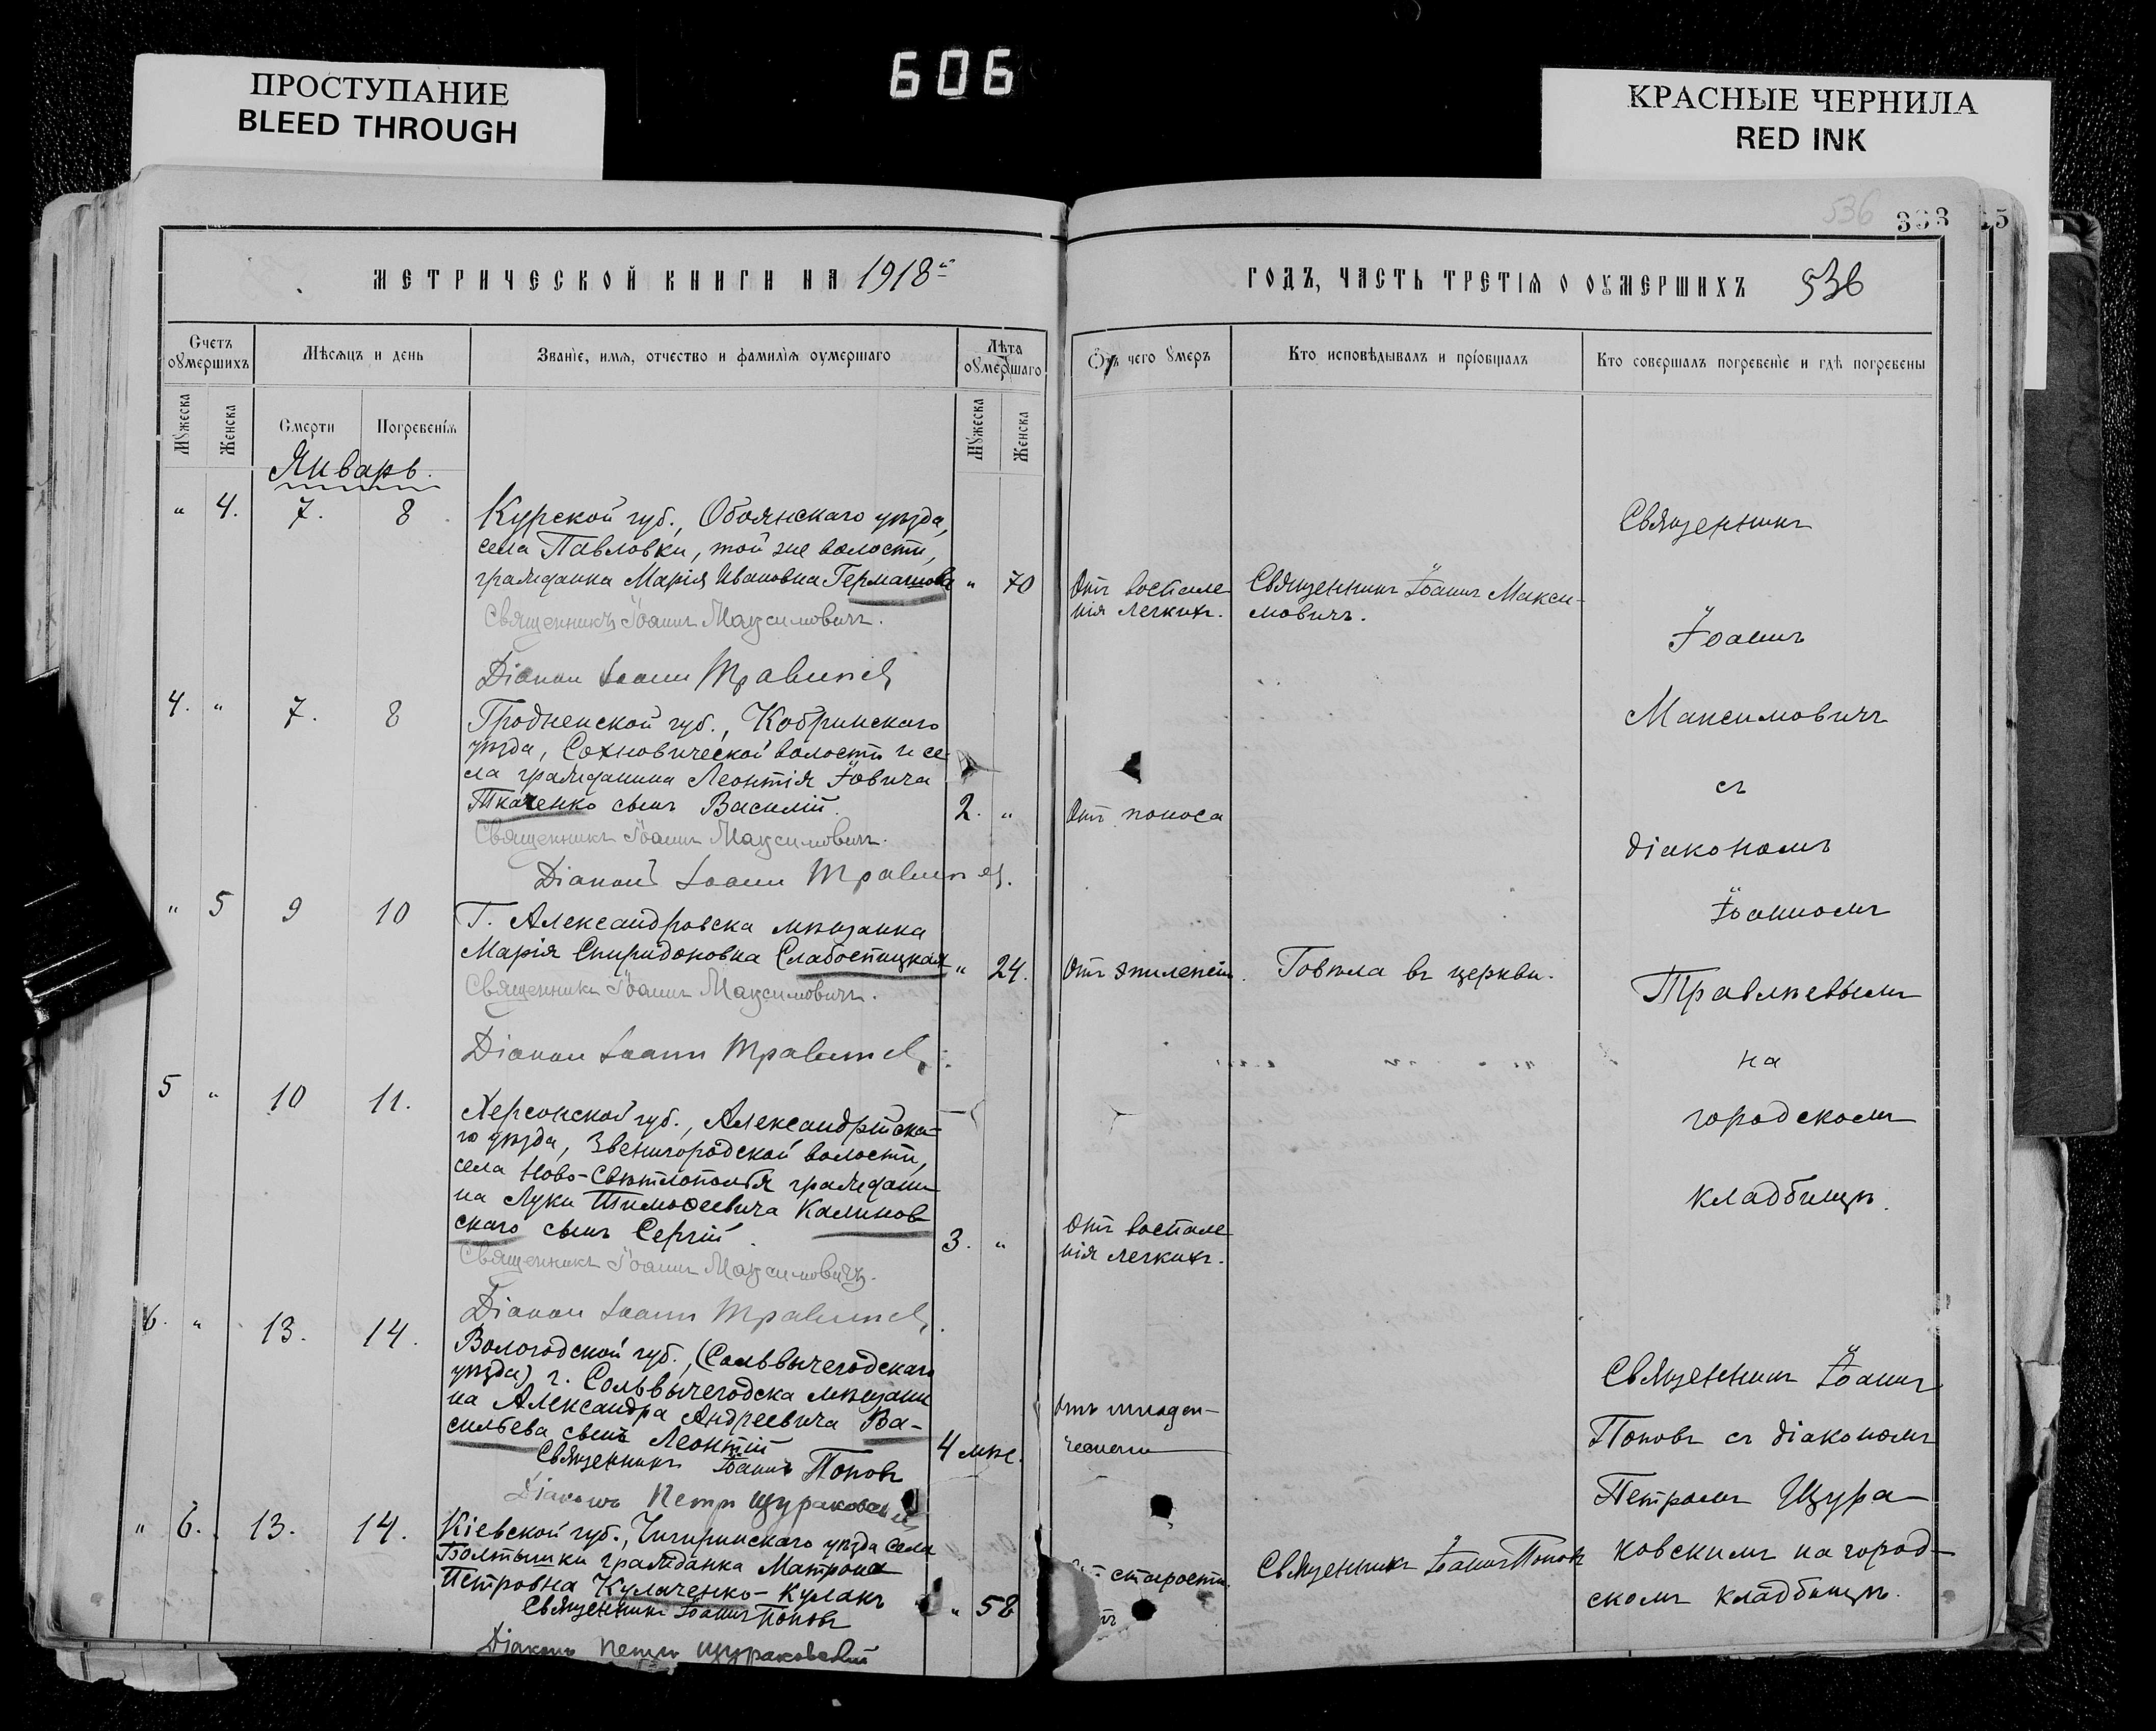 ПРОСТУПАНИЕ
BLEED THROUGH
606
КРАСНЫЕ ЧЕРНИЛА
RED INK
536
333
МЕТРИЧЕСКОЙ КНИГИ НА 1918й
ГОДЪ, ЧАСТЬ ТРЕТІѦ О ОУМЕРШИХЪ 536
Счетъ оумершихъ
Мѣсѧцъ и день
Званіе, имѧ, отчество и фамилїѧ оумершаго
Лѣта оумершаго
Ѿъ чего умеръ
Кто исповѣдывалъ и прїобщалъ
Кто совершалъ погребеніе и гдѣ погребены
Мужеска
Женска
Смерти
Погребенїѧ
Мужеска
Женска
Январь.
" 4. 7. 8
Курской губ., Обоянскаго уѣзда,
села Павловки, той же волости,
гражданка Марія Ивановна " 70
Отъ воспале
нія легкихъ.
Священникъ Іоаннъ Макси-
мовичъ.
Священникъ Іоаннъ Максимовичъ.
Діаконъ Іоаннъ Травлѣевъ
4. " 7. 8
Гродненской губ., Кобринскаго
уѣзда, Сохновической волости и се
ла гражданина Леонтія Іовича
Ткаченко сынъ Василій. 2. "
Отъ поноса
Священникъ Іоаннъ Максимовичъ.
Діаконъ Іоаннъ Травлѣевъ.
" 5 9 10
Г. Александровска мѣщанка
Марія Спиридоновна Слабоспицкая " 24.
Отъ эпилепсіи.
Говѣла въ церкви.
Священникъ Іоаннъ Максимовичъ.
Діаконъ Іоаннъ Травлѣевъ
5 " 10 11.
Херсонской губ., Александрійска-
го уѣзда, Звенигородской волости,
села Ново-Свѣтлополья граждани
на Луки Тимоѳеевича Калинов
скаго сынъ Сергій. 3. "
Отъ воспале
нія легкихъ.
Священникъ Іоаннъ Максимовичъ.
Діаконъ Іоаннъ Травлѣевъ
Священникъ
Іоаннъ
Максимовичъ
съ
діакономъ
Іоанномъ
Травлѣевымъ
на
городскомъ
кладбищѣ.
6. " 13. 14.
Вологодской губ., (Сольвычегодскаго
уѣзда) г. Сольвычегодска мѣщани
на Александра Андреевича Ва-
сильева сынъ Леонтій 4 мѣс.
Отъ младен-
ческой
Священникъ Іоаннъ Поповъ
Діаконъ Петръ Щураковскій
" 6. 13. 14.
Кіевской губ., Чигиринскаго уѣзда села
Болтышки гражданка Матрона
Петровна Кулаченко-Кулакъ " 58
старости
Священникъ Іоаннъ Поповъ
Священникъ Іоаннъ Поповъ
Діаконъ Петръ Щураковскій
Священникъ Іоаннъ
Поповъ съ діакономъ
Петромъ Щура-
ковскимъ на город-
скомъ кладбищѣ.